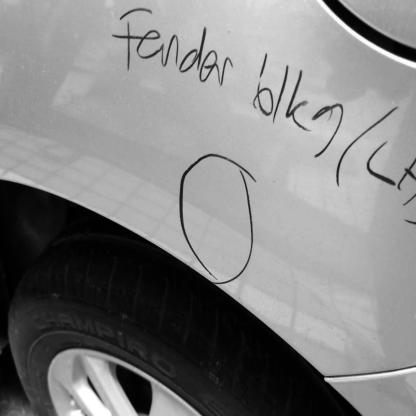 Fender blkg/(LH)
CAMPIRO